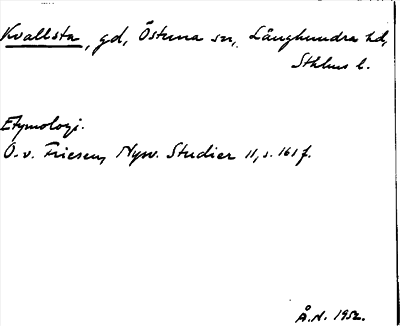 Kvallsta, gd, Östuna sn, Långhundra hd,
Sthlms l.
Etymologi.
O.v. Friesen, Nysv. Studier 11, s. 161 f.
Å.N. 1952.